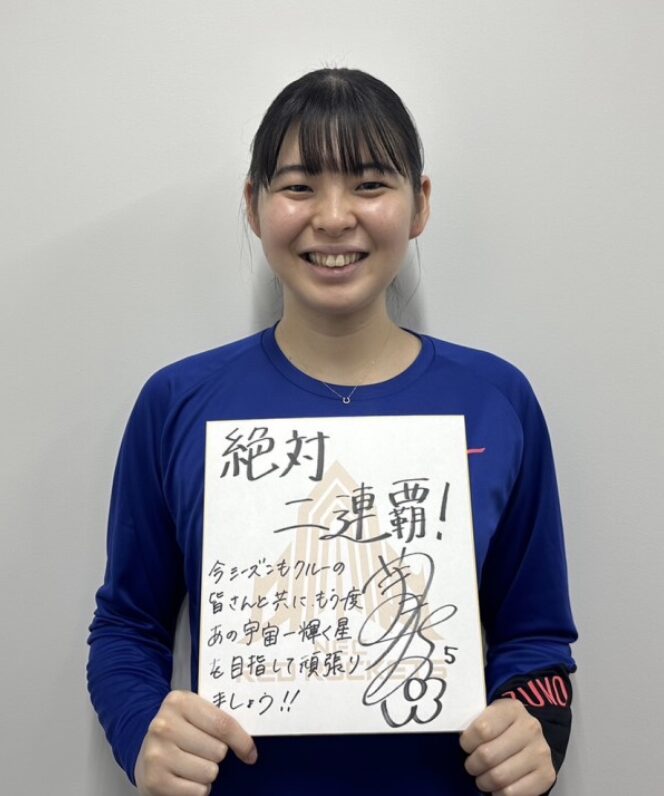 絶対
二連覇!
今シーズンもクルーの
皆さんと共に、もう一度
あの宇宙一輝く星
を目指して頑張り
ましょう!!
5
NEC
RED ROCKETS
ZUNO